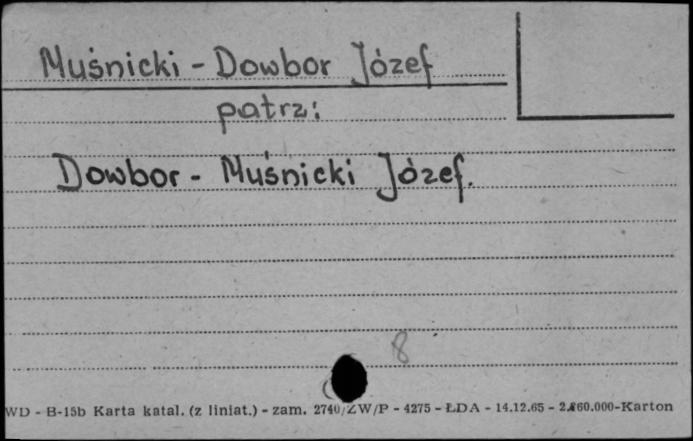 Muśnicki - Dowbor Józef
patrz:
Dowbor - Muśnicki Józef.
8
WD - B-15b Karta katal. (z liniat.) - zam. 2740/ZW/P - 4275 - ŁDA - 14.12.65 - 2.860.000-Karton